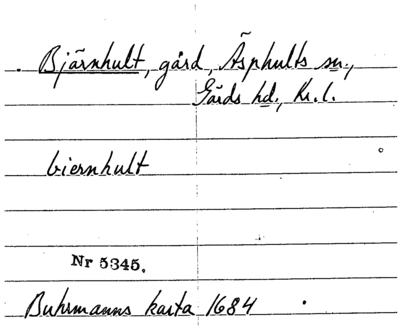 Bjärnhult, gård, Äsphults sn.,
Gärds hd., Kr. l.
biernhult
Nr 5345.
Buhrmanns karta 1684